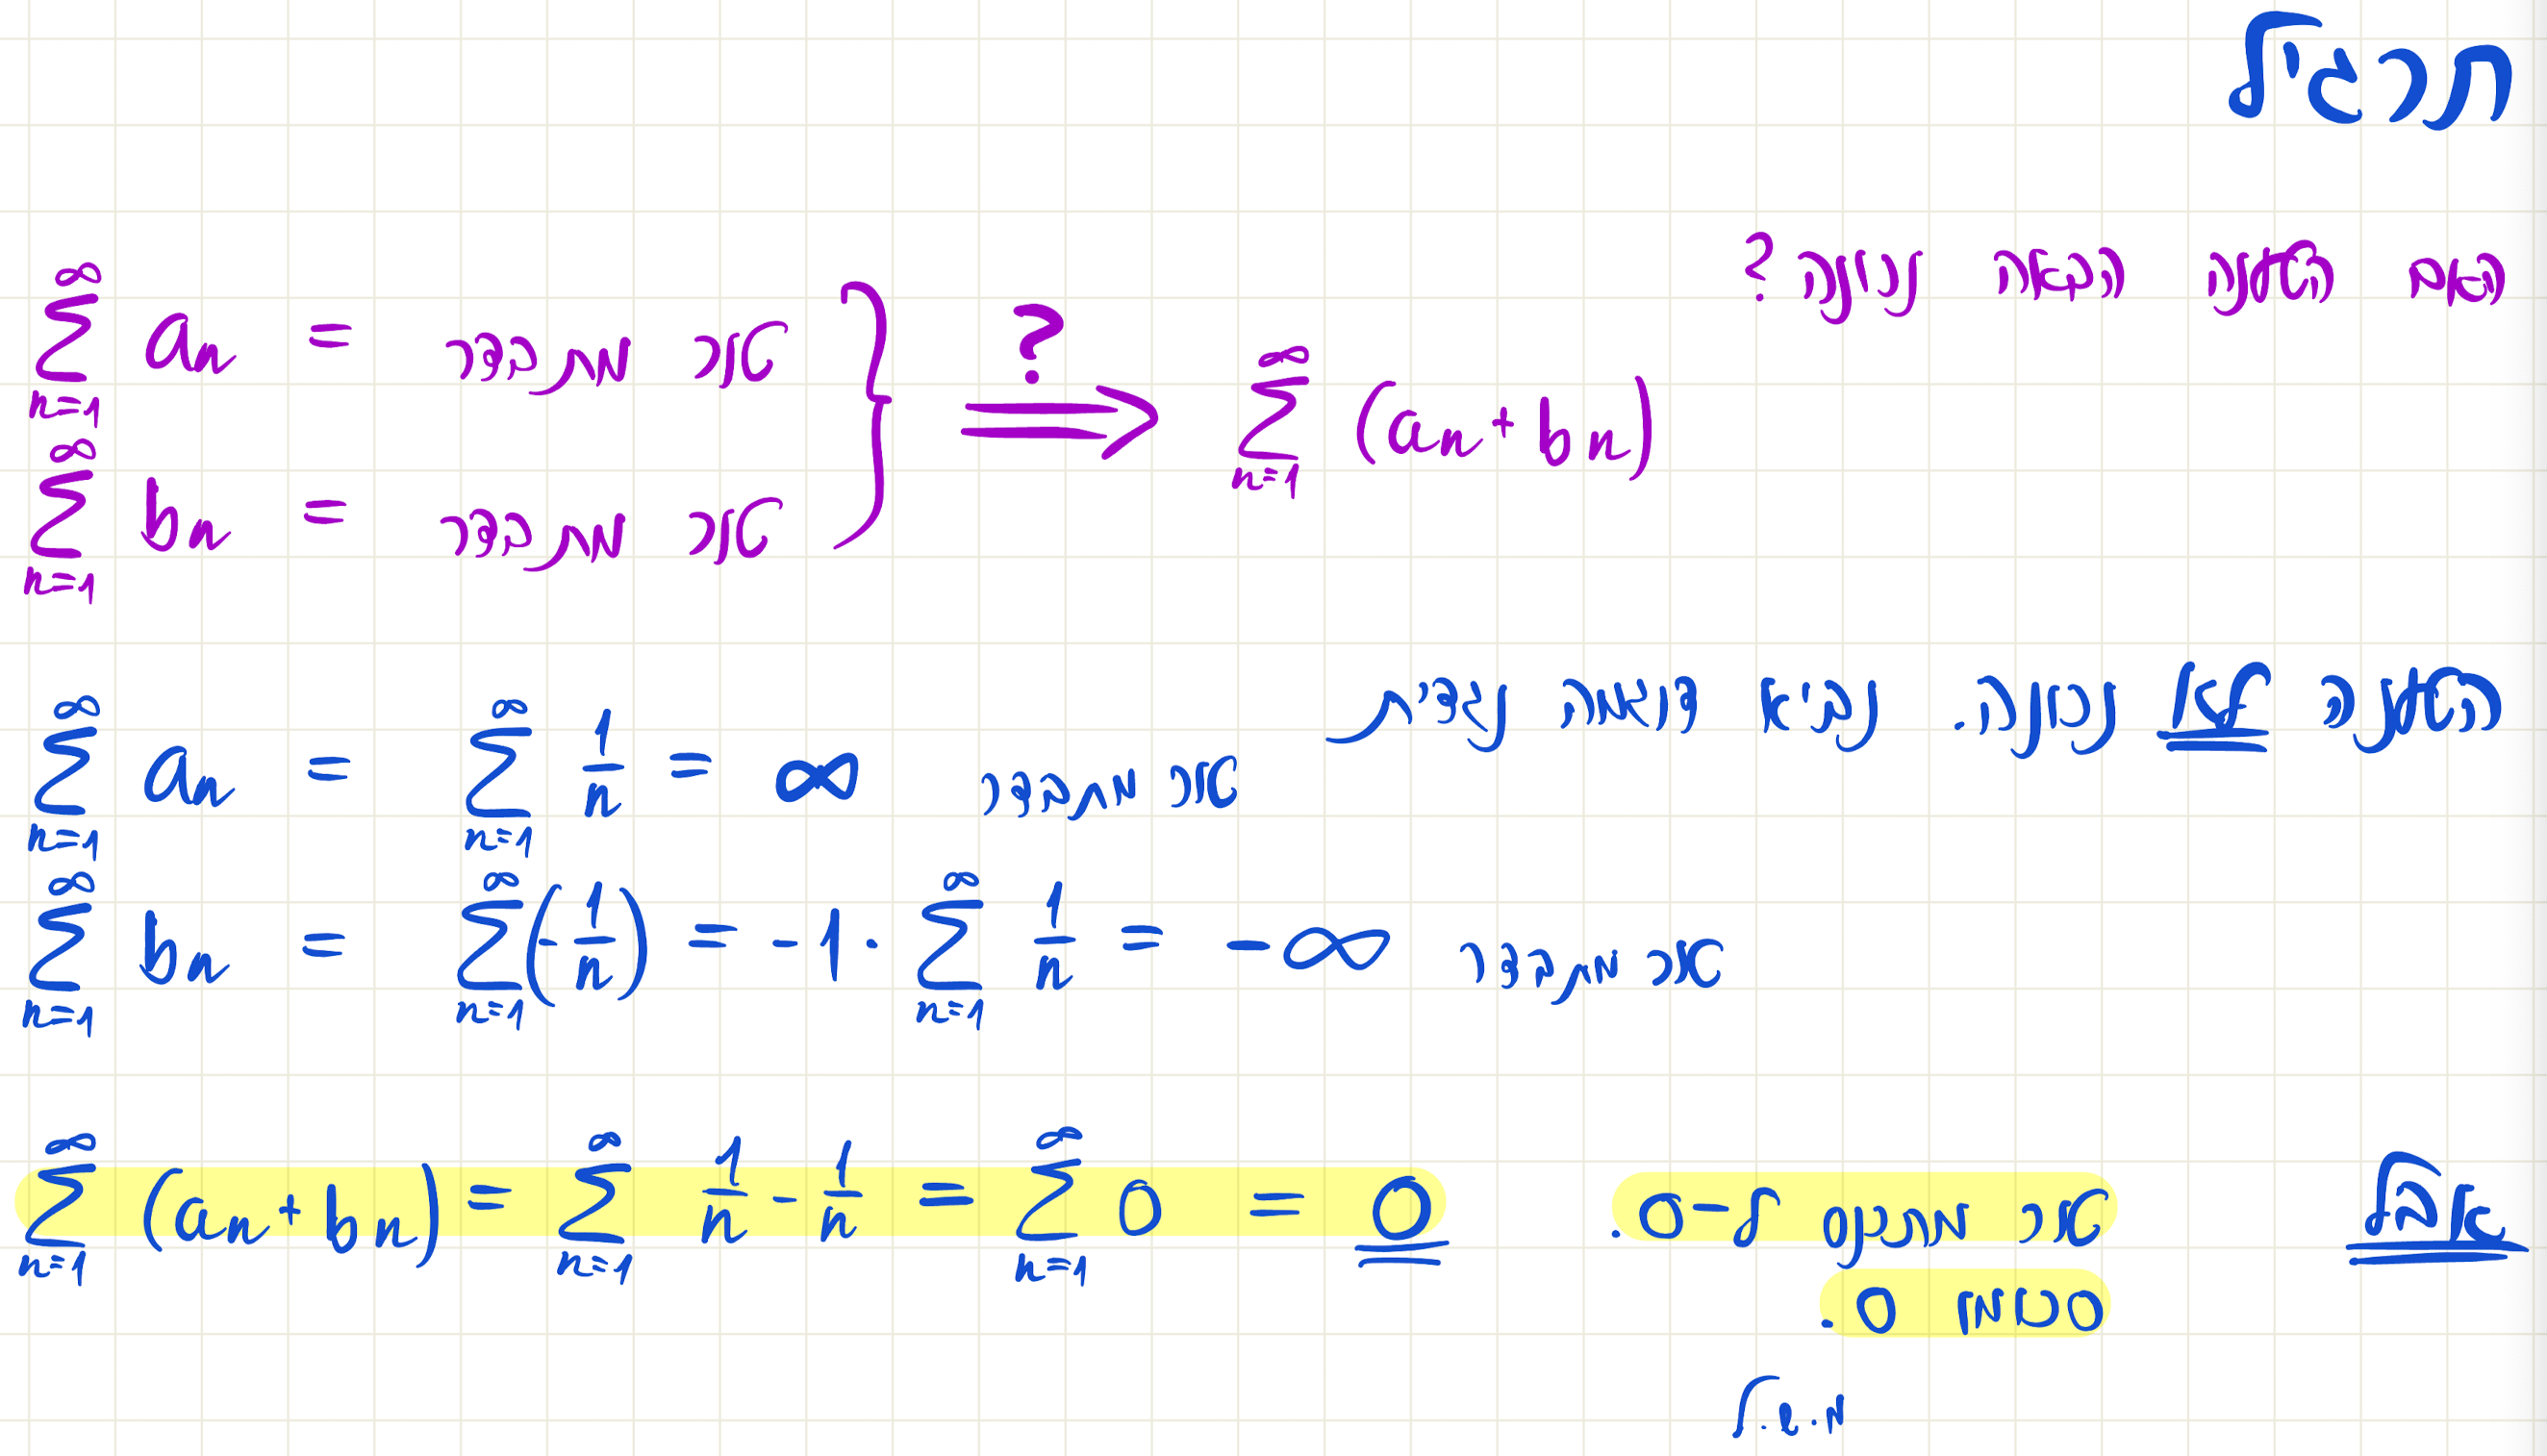 תרגיל
האם הטענה הבאה נכונה?
∑_{n=1}^{∞} a_n = טור מתבדר
∑_{n=1}^{∞} b_n = טור מתבדר } ⟹? ∑_{n=1}^{∞} (a_n + b_n)
הטענה לא נכונה. נביא דוגמה נגדית
∑_{n=1}^{∞} a_n = ∑_{n=1}^{∞} 1/n = ∞ טור מתבדר
∑_{n=1}^{∞} b_n = ∑_{n=1}^{∞} (-1/n) = -1 · ∑_{n=1}^{∞} 1/n = -∞ טור מתבדר
אבל
∑_{n=1}^{∞} (a_n + b_n) = ∑_{n=1}^{∞} 1/n - 1/n = ∑_{n=1}^{∞} 0 = 0 טור מתכנס ל-0.
סכומו 0.
מ.ש.ל